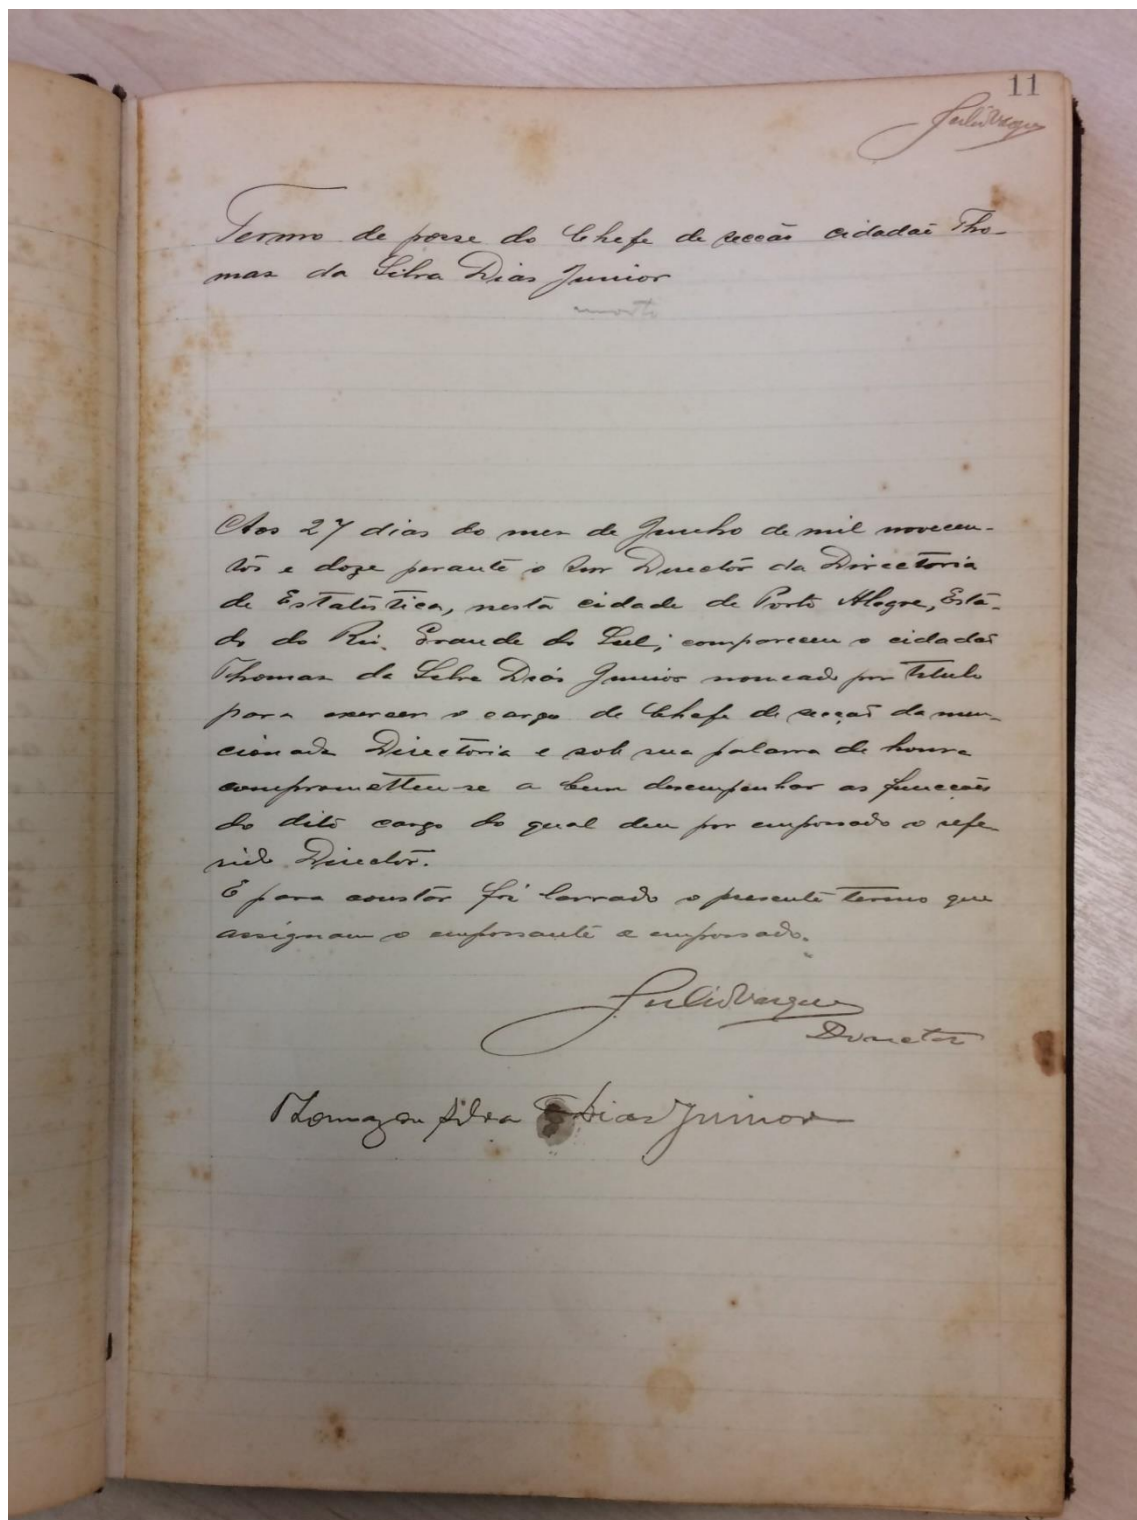 11
Julio Vasques
Termo de posse do Chefe de secção cidadão Tho-
maz da Silva Dias Junior
morto
Aos 27 dias do mez de Junho de mil novecen-
tos e doze perante o Snr Director da Directoria
de Estatistica, nesta cidade de Porto Alegre, Esta-
do do Rio Grande do Sul, compareceu o cidadão
Thomaz da Silva Dias Junior nomeado por titulo
para exercer o cargo de Chefe de secção da men-
cionada Directoria e sob sua palavra de honra
comprometteu-se a bem desempenhar as funcções
do dito cargo do qual deu por empossado o refe-
rido Director.
E para constar foi lavrado o presente termo que
assignam o empossante e empossado.
Julio Vasques
Director
Thomaz da Silva Dias Junior